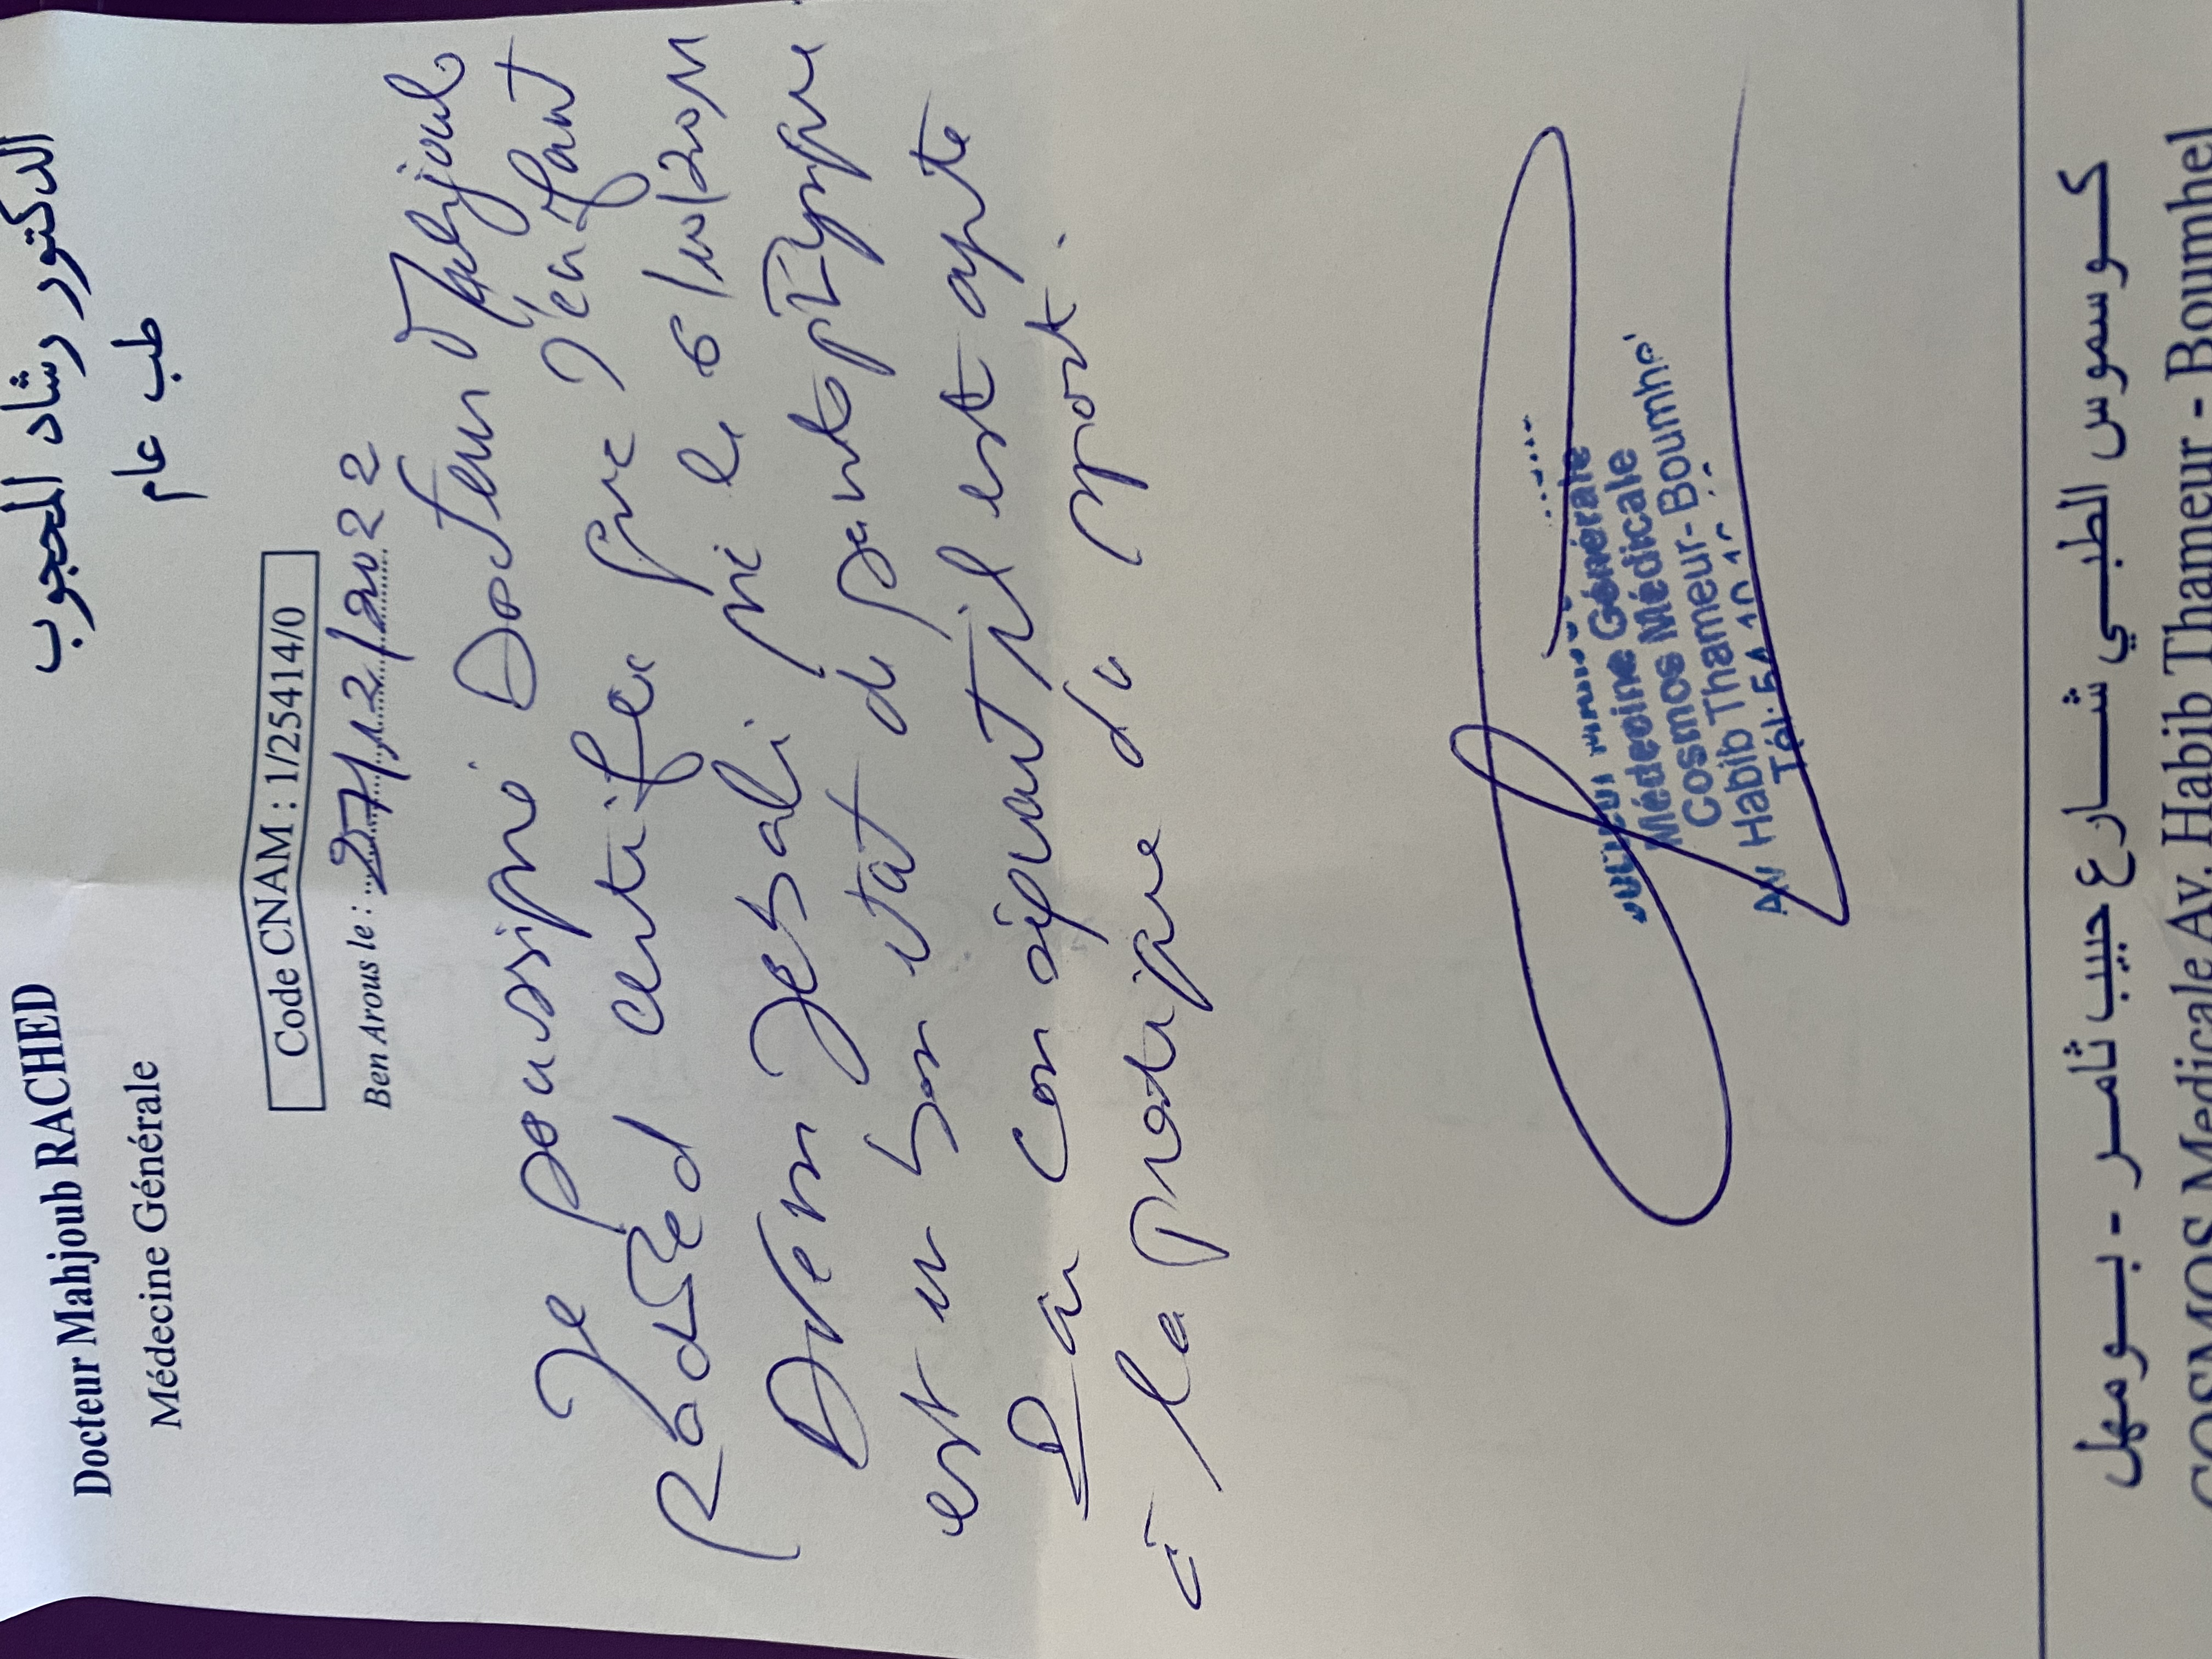 Docteur Mahjoub RACHED
Médecine Générale
الدكتور رشاد المحجوب
طب عام
Code CNAM : 1/25414/0
Ben Arous le : 27/12/2022
Je soussigné Docteur Mahjoub
Rached certifie que l'enfant
Jebali né le 6/10/2011
est en bon état de santé physique
Par conséquent il est apte
à la pratique du sport.
Médecine Générale
Cosmos Médicale
Av Habib Thameur - Boumhel
Tél: 54
كوسموس الطبي شارع حبيب ثامر - بومهل
COSMOS Medicale Av. Habib Thameur - Boumhel